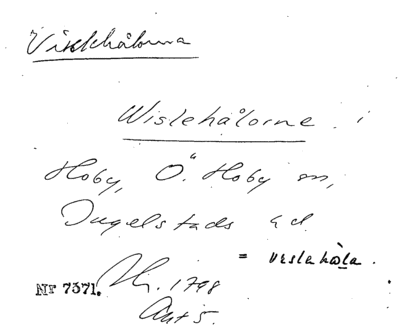 Visslehålorna
Wislehålorne i
Hoby, Ö. Hoby sn,
Ingelstads hd.
= veslahåla.
Nr 7371. 1798
Akt 5.